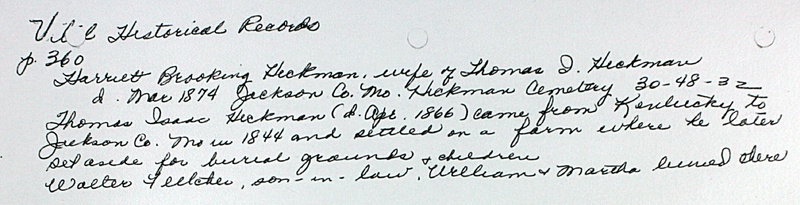 Vital Historical Records
p. 360
Harriett Brooking Hickman, wife of Thomas I. Hickman
d. Mar 1874 Jackson Co. Mo. Hickman Cemetery 30-48-32
Thomas Isaac Hickman (d. Apr. 1866) came from Kentucky to
Jackson Co. Mo in 1844 and settled on a farm where he later
set aside for burial grounds & children
Walter Fletcher, son-in-law, William & Martha buried there